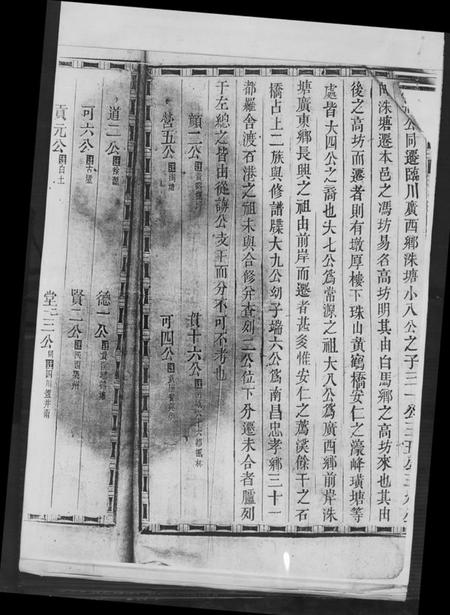 公同遷臨川廣西鄉洙塘小八公之子三一公三五公三九公
由洙塘遷本邑之馮坊易名高坊明其由白馬鄉之高坊來也其由
後之高坊而遷者則有墩厚樓下珠山黃鶴橋安仁之濠峰璜塘等
處皆大四公之裔也大七公爲常源之祖大八公爲廣西鄉前岸洙
塘廣東鄉長興之祖由前岸而遷者甚多惟安仁之萬溪餘干之石
橋占上二族與修譜牒大九公幼子端六公爲南昌忠孝鄉三十一
都羅舍渡石港之祖未與合修幷查列二公位下外遷未合者臚列
於左總之皆由從諱公支下而分不可不考也
顏二公
貴十六公
營五公
可四公
道二公
德一公
可六公 古塋
賢二公
貢元公 白土
堂三公